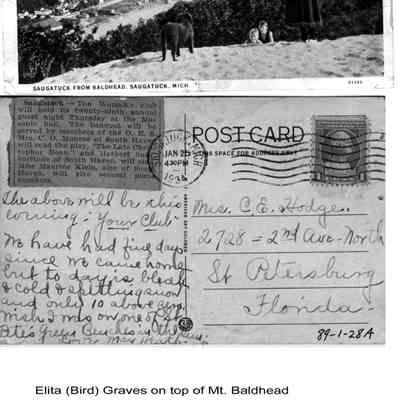 SAUGATUCK FROM BALDHEAD. SAUGATUCK, MICH.
Saugatuck — The Woman's club
will hold its twenty-ninth annual
guest night Thursday at the Ma-
sonic hall. The banquet will be
served by members of the O. E. S.
Mrs. C. O. Monroe of South Haven
will read the play, "The Late Chris-
topher Bean" and Herbert
of South Haven, will sing.
Haven, will give several piano
numbers.
The above will be this
evening - Your Club -
We have had fine days
since we came home
but to day is bleak
& cold & spitting snow
and only 10 above zero
wish I was on one of St
Pete's Green Benches in the sun.
POST CARD
THIS SPACE FOR ADDRESS ONLY
JAN 25
4 30 PM
Mrs. C. E. Hodge.
2728 = 2nd Ave. North
St Petersburg
Florida.
89-1-28A
Elita (Bird) Graves on top of Mt. Baldhead